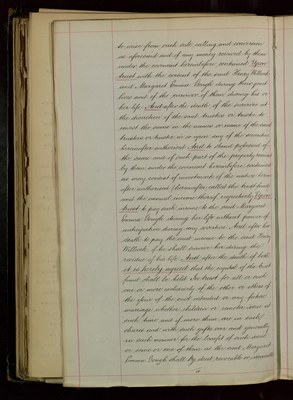 to arise from such sale calling and conversion
as aforesaid and of any money received by them
under the covenant hereinbefore contained Upon
trust with the consent of the said Henry Willock
and Margaret Emma Gough during their joint
lives and of the survivor of them during his or
her life And after the death of the survivor at
the discretion of the said trustees or trustee to
invest the same in the names or name of the said
trustees or trustee in or upon any of the securities
hereinafter authorised And to stand possessed of
the same and of such part of the property received
by them under the covenant hereinbefore contained
as may consist of investments of the nature herein
after authorised (hereinafter called the trust fund)
and the annual income thereof respectively Upon
trust to pay such income to the said Margaret
Emma Gough during her life without power of
anticipation during any coverture And after her
death to pay the said income to the said Henry
Willock if he shall survive her during the
residue of his life And after the death of both
it is hereby agreed that the capital of the trust
fund shall be held In trust for all or such
one or more exclusively of the other or others of
the issue of the said intended or any future
marriage whether children or remoter issue at
such time and if more than one in such
shares and with such gifts over and generally
in such manner for the benefit of such issue
or some or one of them as the said Margaret
Emma Gough shall by deed revocable or irrevocable